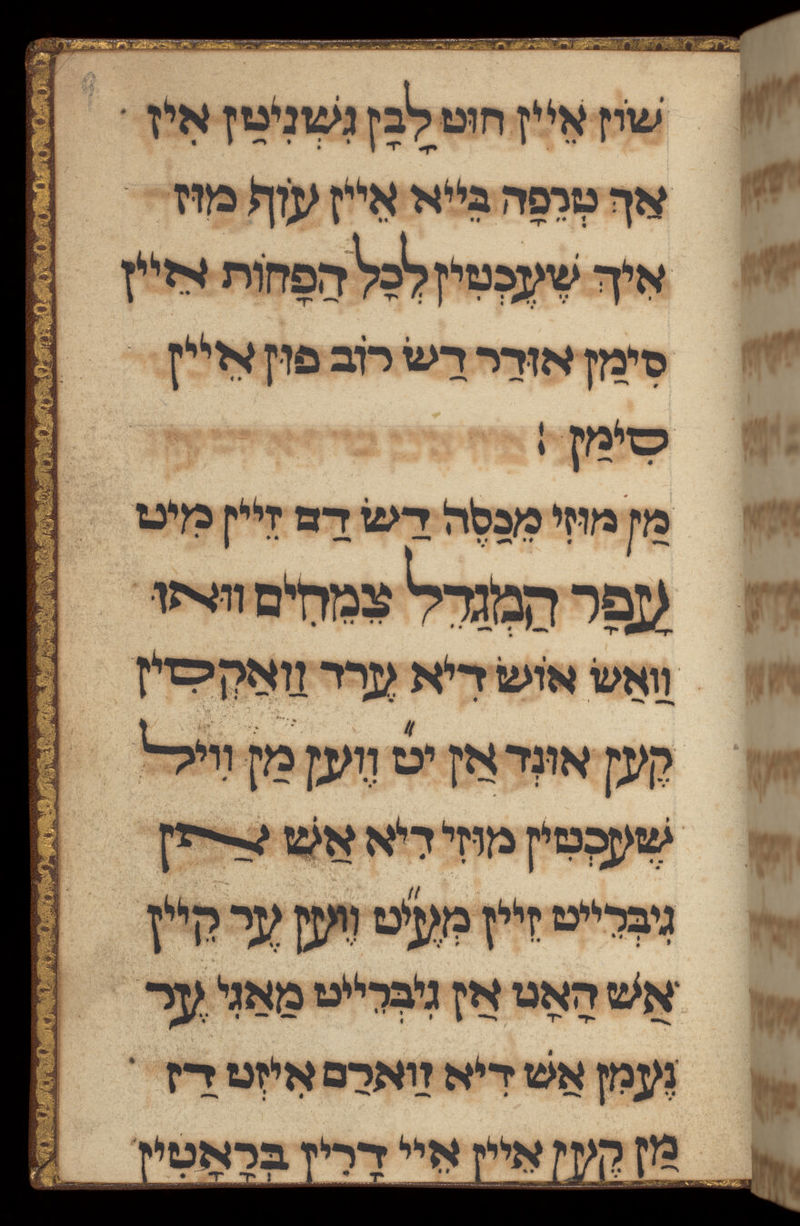 שׁוֹן אֵיין חוּט לָבָן גִשְׁנִיטַן אִין
אַךְ טְרֵפָה בֵּייא אֵיין עוֹף מוּז
אִיךְ שֶׁעֶכְטִין לְכָל הַפָּחוֹת אֵיין
סִימַן אוּדַר דַשׂ רוֹב פוּן אֵיין
סִימַן :
מַן מוּזִי מְכַסֶה דַשׂ דַם זֵיין מִיט
עָפָר הַמְגַדֵל צְמָחִים וואו
וַואַשׂ אוֹשׂ דִיא עֶרד וַואַקְסִין
קֶען אוּנְד אַן י״ט וֶוען מַן וִויל
שֶׁעכְטִין מוּזִי דִיא אַשׁ שַׁוין
גִיבְּרֵייט זֵיין מְעֶי״ט וֶוען עֶר קֵיין
אַשׁ הָאָט אַן גִיבְּרֵייט מַאַגִי עֶר
נֶעמִן אַשׁ דִיא וַוארַם אִיזְט דַז
מַן קֶען אֵיין אֵיי דָרִין בְּרָאָטִין